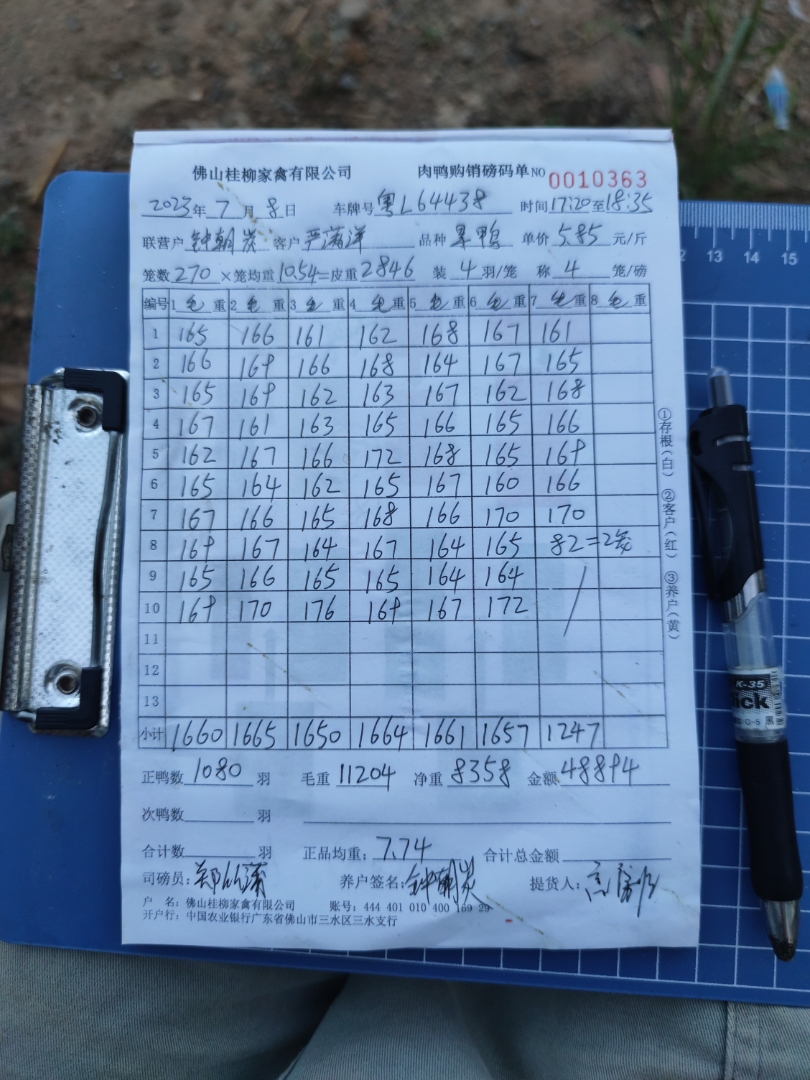 佛山桂柳家禽有限公司 肉鸭购销磅码单 NO 0010363
2023年 7月 8日 车牌号 粤L64438 时间 17:20至18:35
联营户 钟朝炭 客户 品种 单价 5.85 元/斤
笼数 270 ×笼均重 10.54=皮重 2846 装 4 羽/笼 称 4 笼/磅
编号 1 毛 重 2 毛 重 3 毛 重 4 毛 重 5 毛 重 6 毛 重 7 毛 重 8 毛 重
1 165 166 161 162 168 167 161
2 166 169 166 168 164 167 165
3 165 169 162 163 167 162 168
4 167 161 163 165 166 165 166
5 162 167 166 172 168 165 169
6 165 164 162 165 167 160 166
7 167 166 165 168 166 170 170
8 169 167 164 167 164 165 82=2笼
9 165 166 165 165 164 164
10 169 170 176 169 167 172
11
12
13
小计 1660 1665 1650 1664 1661 1657 1247
正鸭数 1080 羽 毛重 11204 净重 8358 金额 48894
次鸭数 羽
合计数 羽 正品均重: 7.74 合计总金额
司磅员: 养户签名: 钟朝炭 提货人:
户 名: 佛山桂柳家禽有限公司 账号: 444 401 010 400 169 29
开户行: 中国农业银行广东省佛山市三水区三水支行
①存根(白) ②客户(红) ③养户(黄)
13 14 15
K-35
ick